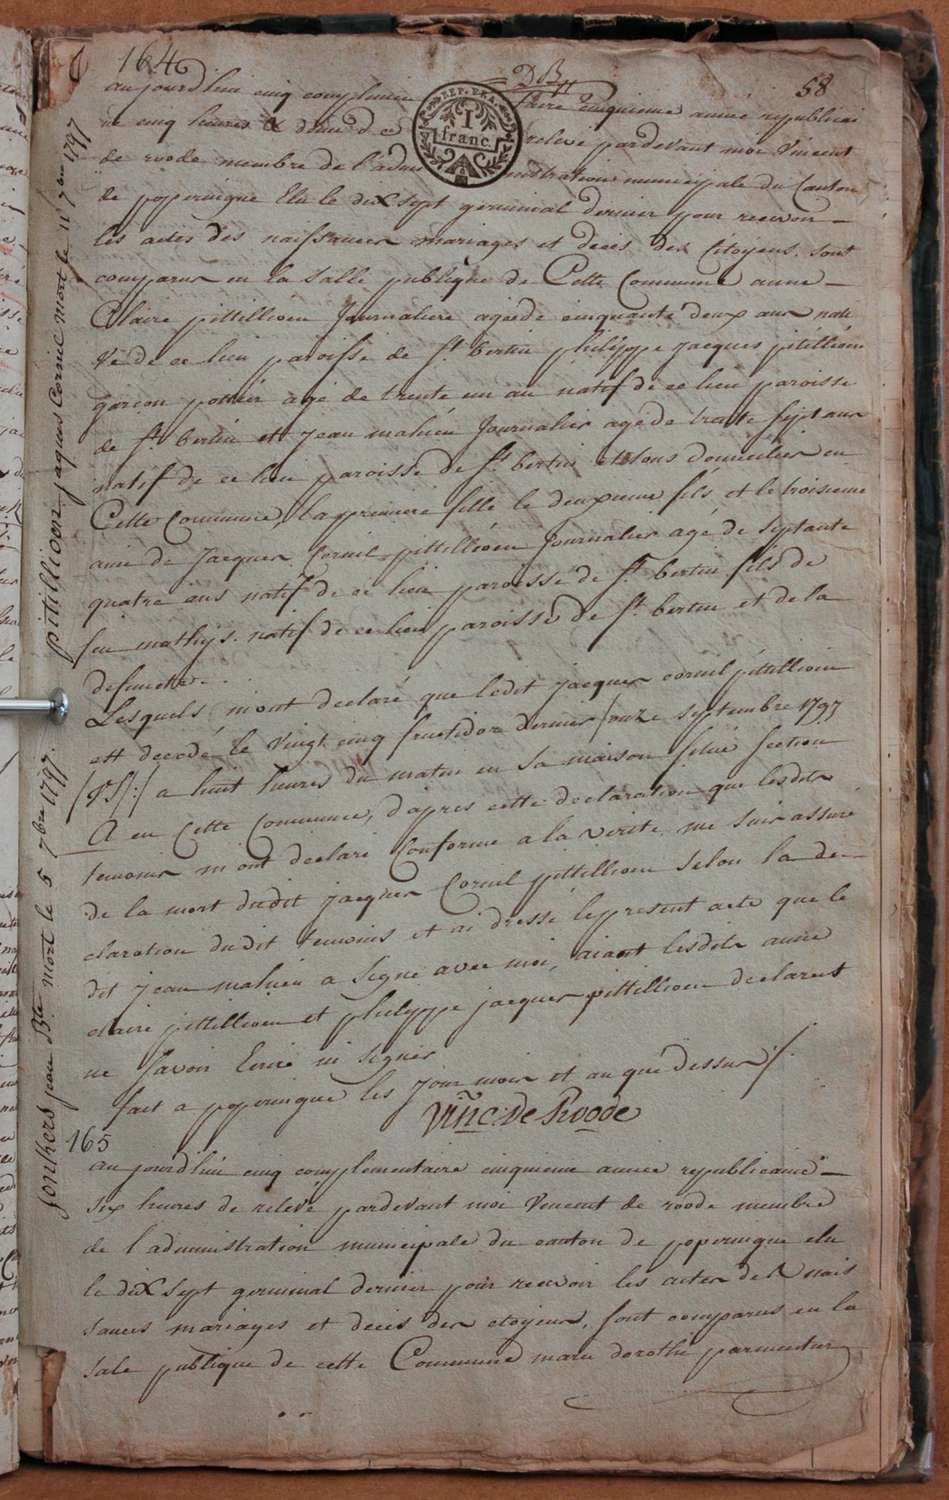 164
DB
58
REP. FRA.
1
franc.
aujourdhui cinq complemen taire cinquieme année republicai
ne cinq heures & demi de relevé pardevant moi Vincent
de roode membre de l'admi nistration municipale du Canton
de poperingue Elu le dix sept germinal dernier pour recevoir —
les actes des naissances mariages et decés des Citoyens. sont
comparus en la salle publique de Cette Commune anne —
Claire pittillioen Journaliere agée de cinquante deux ans nati
ve de ce lieu paroisse de st. bertin philippe jacques pitillioen
garcon potier agé de trente un an natif de ce lieu paroisse
de st. bertin et jean mahieu Journalier agé de trente sept ans
natif de ce lieu paroisse de st. bertin et tous domiciliés en
Cette Commune, la premiere fille le deuxieme fils et le troisieme
ami de Jacques Cornil pittillioen Journalier agé de septante
quatre ans natif de ce lieu paroisse de st. bertin fils de
feu mathijs natif de ce lieu paroisse de st. bertin et de la
defuncte .
Lesquels m'ont declaré que ledit jacques cornil pittillioen
est decedé le vingt cinq fructidor dernier (onze septembre 1797
(VS):) a huit heures du matin en sa maison situé section
A en Cette Commune, d'apres cette declaration que lesdits
temoins m'ont declaré Conforme a la verité me suis assuré
de la mort dudit jacques Cornil pittillioen selon la de
claration dudit temoins et ai dressé le present acte que le
dit jean mahieu a signé avec moi, aiant lesdits anne
claire pittillioen et philippe jacques pittillioen declarent
ne savoir Ecrire ni signer
fait a poperingue les jour mois et an que dessus /.
Vinc: De Roode
165
aujourdhui cinq complementaire cinquieme année republicaine —
six heures de relevé pardevant moi Vincent de roode membre
de l'administration municipale du canton de poperingue elu
le dix sept germinal dernier pour recevoir les actes de nais
sances mariages et decés des citoyens, sont comparus en la
sale publique de cette Commune marie dorothé parmentier
pitillioen jaques Cornil mort le 11 7bre 1797
Jonkers jean Bte mort le 5 7bre 1797.